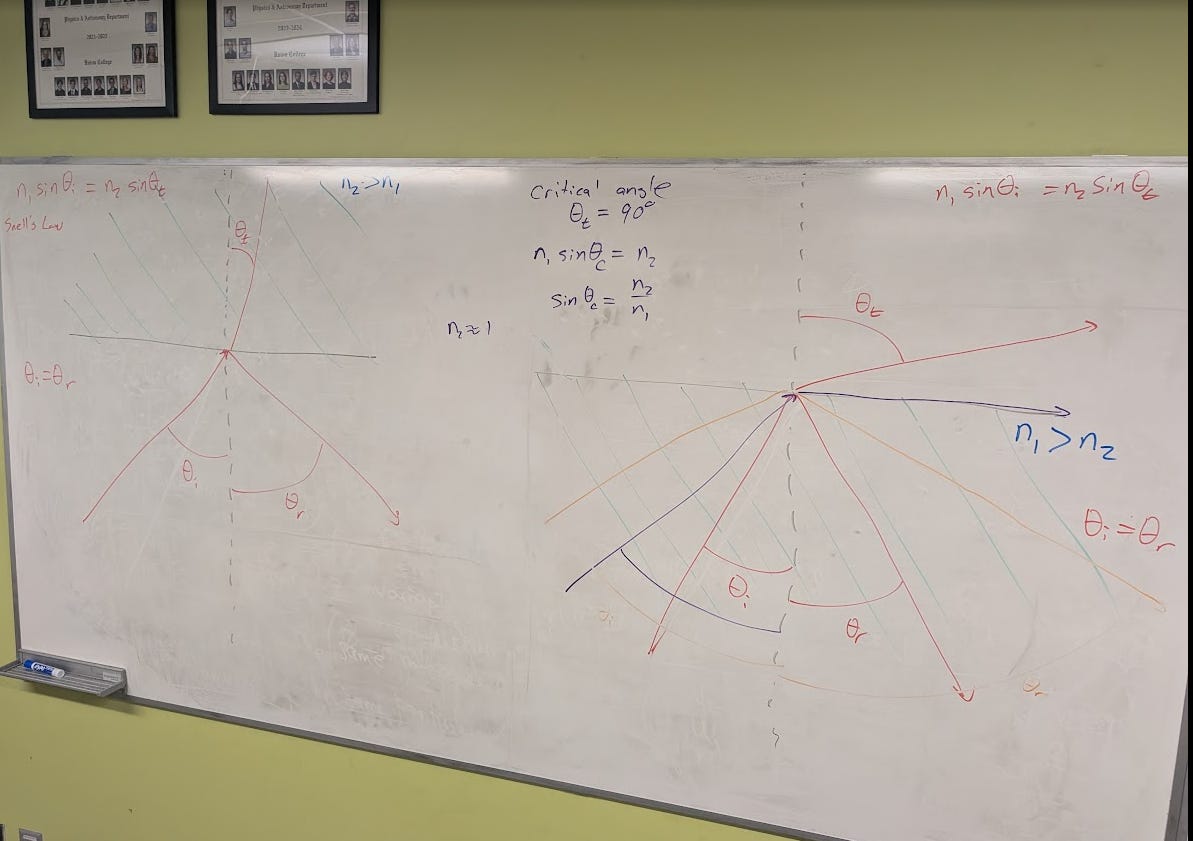 Physics & Astronomy Department
2021-2022
Union College
Physics & Astronomy Department
2023-2024
Union College
n₁ sinθᵢ = n₂ sinθₜ
Snell's Law
n₂ > n₁
θₜ
θᵢ = θᵣ
θᵢ
θᵣ
Critical angle
θₜ = 90°
n₁ sinθ_c = n₂
sin θ_c = n₂/n₁
n₂ ≈ 1
n₁ sinθᵢ = n₂ sin θₜ
θₜ
n₁ > n₂
θᵢ = θᵣ
θᵢ
θᵣ
θᵢ
θᵣ